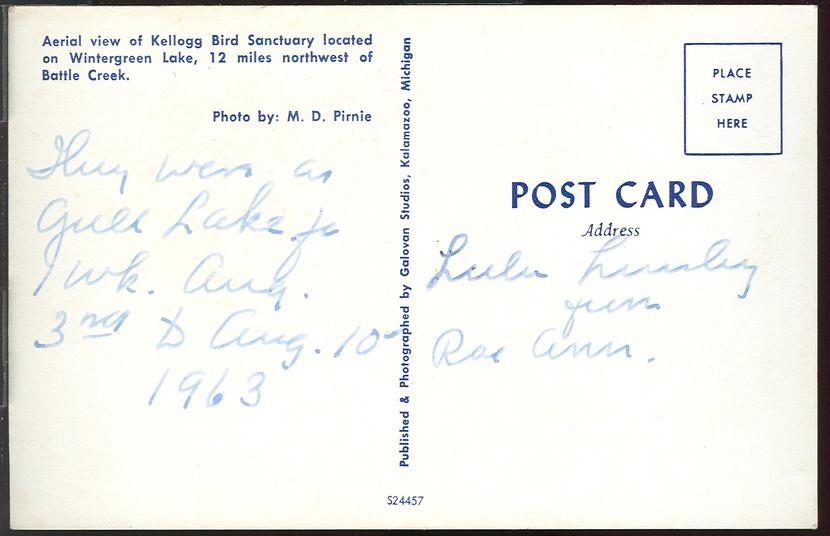 Aerial view of Kellogg Bird Sanctuary located
on Wintergreen Lake, 12 miles northwest of
Battle Creek.
Photo by: M. D. Pirnie
They were at
Gull Lake fo
1 wk. Aug.
3rd to Aug. 10
1963
Published & Photographed by Galovan Studios, Kalamazoo, Michigan
S24457
PLACE
STAMP
HERE
POST CARD
Address
Lulu
from
Rae Ann.